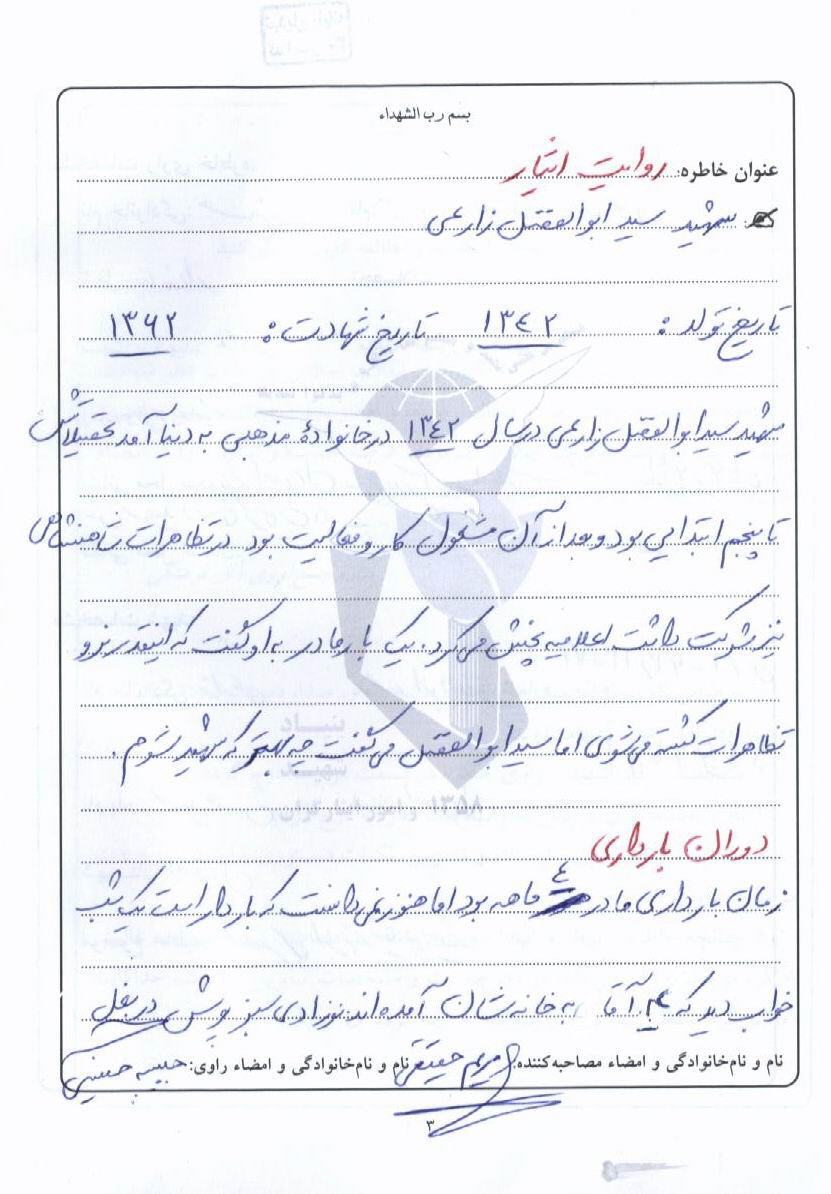 بسم رب الشهداء
عنوان خاطره: روایت ایثار
شهید سید ابوالفضل زارعی
تاریخ تولد: ۱۳۴۲ تاریخ شهادت: ۱۳۶۲
شهید سید ابوالفضل زارعی در سال ۱۳۴۲ در خانوادۀ مذهبی به دنیا آمد تحصیلاتش
تا پنجم ابتدایی بود و بعد از آن مشغول کار و فعالیت بود در تظاهرات شاهنشاهی
نیز شرکت داشت اعلامیه پخش می‌کرد. یک بار مادر به او گفت که اینقدر نرو
تظاهرات کشته می‌شوی اما سید ابوالفضل می‌گفت چه بهتر که شهید شوم.
دوران بارداری
زمان بارداری مادر ۴ ماهه بود اما هنوز نمی‌دانست که باردار است یک شب
خواب دید که آقا به خانه‌شان آمده‌اند نوزادی سبز پوش در بغل
نام و نام‌خانوادگی و امضاء مصاحبه‌کننده: مریم نام و نام‌خانوادگی و امضاء راوی: حبیبه حسینی
۳
بنیاد
شهید
و امور ایثارگران ۱۳۵۸